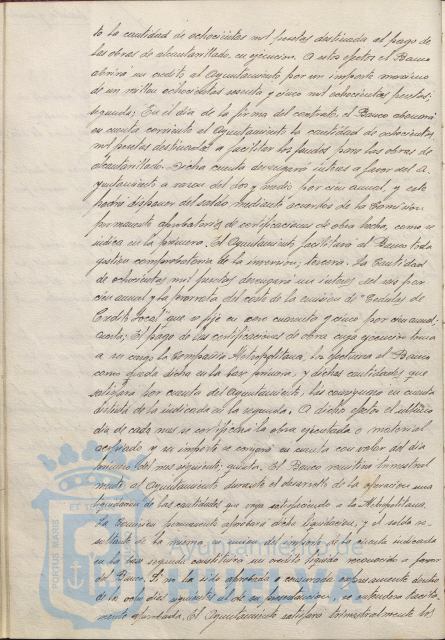 to la cantidad de ochocientas mil pesetas destinada al pago de
las obras de alcantarillado en ejecución. A estos efectos el Banco
abrirá un crédito al Ayuntamiento por un importe máximo
de un millón ochocientas y cinco mil ochocientas pesetas;
segunda; En el día de la firma del contrato, el Banco abonará
en cuenta corriente al Ayuntamiento la cantidad de ochocientas
mil pesetas destinadas a facilitar los fondos para las obras de
alcantarillado. Dicha cuenta devengará interés a favor del A-
yuntamiento a razón del dos y medio por cien anual, y este
podrá disponer del saldo mediante acuerdos de la Comisión
permanente aprobatorios de certificaciones de obra hecha, como se
indica en la primera. El Ayuntamiento facilitará al Banco toda
justificación comprobatoria de la inversión; tercera. La cantidad
de ochocientas mil pesetas devengará un interés del por
cien anual y la prorrata del coste de la emisión de "Cédulas de
Crédito Local" que se fija en cero cuarenta y cinco por cien anual;
cuarta; El pago de las certificaciones de obra cuya ejecución toma
a su cargo la Compañía Metropolitana, los efectuará el Banco
como queda dicho en la base primera, y dichas cantidades que
satisfará por cuenta del Ayuntamiento, las consignará en cuenta
distinta de la indicada en la segunda. A dicho efecto el último
día de cada mes se certificará la obra ejecutada o material
acopiado y su importe se cargará en cuenta con valor del día
primero del mes siguiente; quinta. El Banco remitirá trimestral
mente al Ayuntamiento durante el desarrollo de la operación una
liquidación de las cantidades que vaya satisfaciendo a la Metropolitana.
La Comisión permanente aprobará dicha liquidación, y el saldo re-
sultante de la misma, en unión del importe de la cuenta indicada
en la base segunda constituirá un crédito líquido reconocido a favor
del Banco. Si no ha sido aprobada y censurada expresamente dentro
de los ocho días siguientes al de su presentación, se entenderá tácita-
mente aprobada. El Ayuntamiento satisfará trimestralmente los
Ayuntamiento de
PORTUS MAGNIS